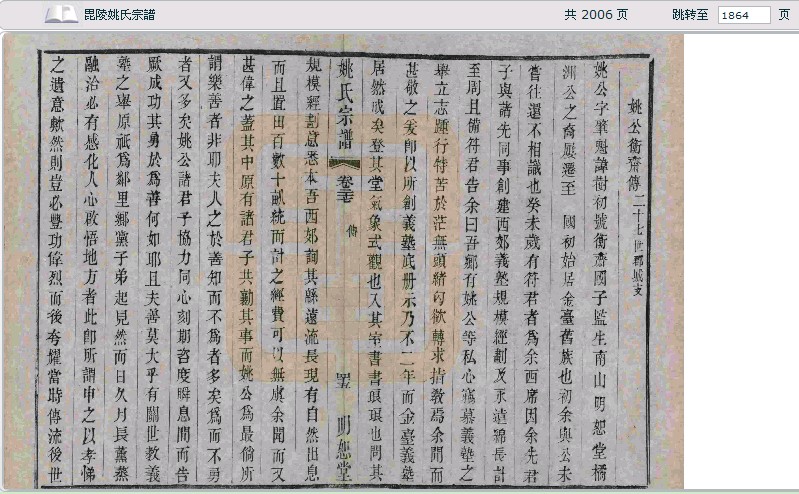 毘陵姚氏宗譜
共 2006 页
跳转至 1864 页
姚公衡齋傳 二十七世郡城支
姚公字肇魁諱樹初號衡齋國子監生南山明恕堂橘
洲公之裔屢遷至 國初始居金臺舊族也初余與公未
嘗往還不相識也癸未歲有符君者為余西席因余先君
子與諸先同事創建西郊義塾規模經劃及永遠綿長計
至周且備符君告余曰吾鄉有姚公等私心竊慕義塾之
舉立志踵行特苦於茫無頭緒囪欲轉求指教焉余聞而
甚敬之爰即以所創義塾底冊示乃不二年而金臺義塾
居然成矣登其堂氣象式觀也入其室書書琅琅也問其
姚氏宗譜 卷 傳 明恕堂
規模經劃意悉本吾西郊詢其緜遠流長現有自然出息
而且置田百數十畝統而計之經費可以無虞余聞而又
甚偉之蓋其中原有諸君子共勷其事而姚公為最倘所
謂樂善者非耶夫人之於善知而不為者多矣為而不勇
者又多矣姚公諸君子協力同心刻期咨度瞬息間而告
厥成功其勇於為善何如耶且夫善莫大乎有關世教義
塾之舉原祇為鄰里鄉黨子弟起見然而日久月長薰蒸
融洽必有感化人心啟悟地方者此即所謂申之以孝悌
之遺意歟然則豈必豐功偉烈而後夸耀當時傳流後世